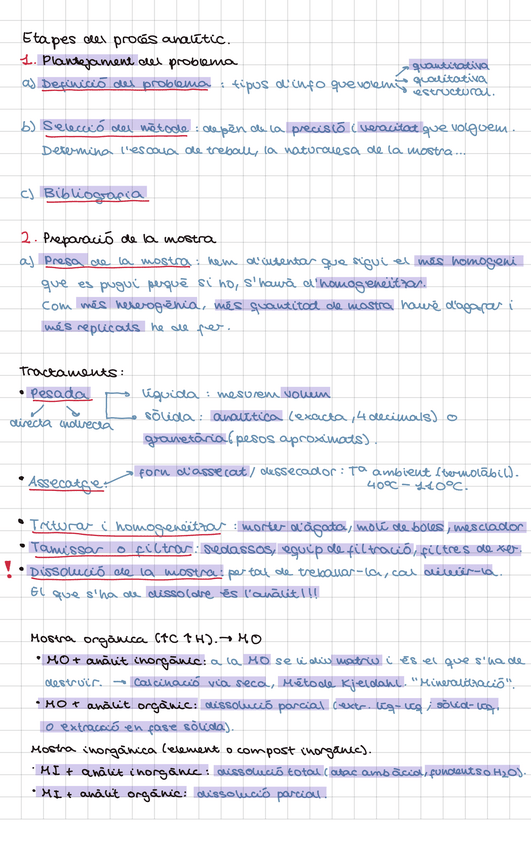 Etapes del procés analític.
1. Plantejament del problema
a) Definició del problema : tipus d'info que volem → quantitativa
→ qualitativa
→ estructural.
b) Selecció del mètode : depèn de la precisió i veracitat que volguem.
Determina l'escala de treball, la naturalesa de la mostra...
c) Bibliografia
2. Preparació de la mostra
a) Presa de la mostra : hem d'intentar que sigui el més homogeni
que es pugui perquè si no, s'haurà d'homogeneïtzar.
Com més heterogènia, més quantitat de mostra hauré d'agafar i
més replicats he de fer.
Tractaments:
• Pesada → líquida : mesurem volum
directa indirecta → sòlida : analítica (exacta, 4 decimals) o
granetària (pesos aproximats).
• Assecatge: → forn d'assecat / dessecador : Tª ambient (termolàbil).
40ºC - 110ºC.
• Triturar i homogeneïtzar : morter d'àgata, molí de boles, mesclador
• Tamissar o filtrar: sedassos, equip de filtració, filtres de xer.
! • Dissolució de la mostra: per tal de treballar-la, cal diluir-la.
El que s'ha de dissoldre és l'anàlit!!!
Mostra orgànica (↑C ↑H). → MO
• MO + anàlit inorgànic: a la MO se li diu matriu i és el que s'ha de
destruir. → Calcinació via seca, Mètode Kjeldahl. "Mineralització".
• MO + anàlit orgànic: dissolució parcial (extr. líq-líq, sòlid-líq,
o extracció en fase sòlida).
Mostra inorgànica (element o compost inorgànic).
• MI + anàlit inorgànic: dissolució total (atac amb àcid, fundents o H₂O).
• MI + anàlit orgànic: dissolució parcial.